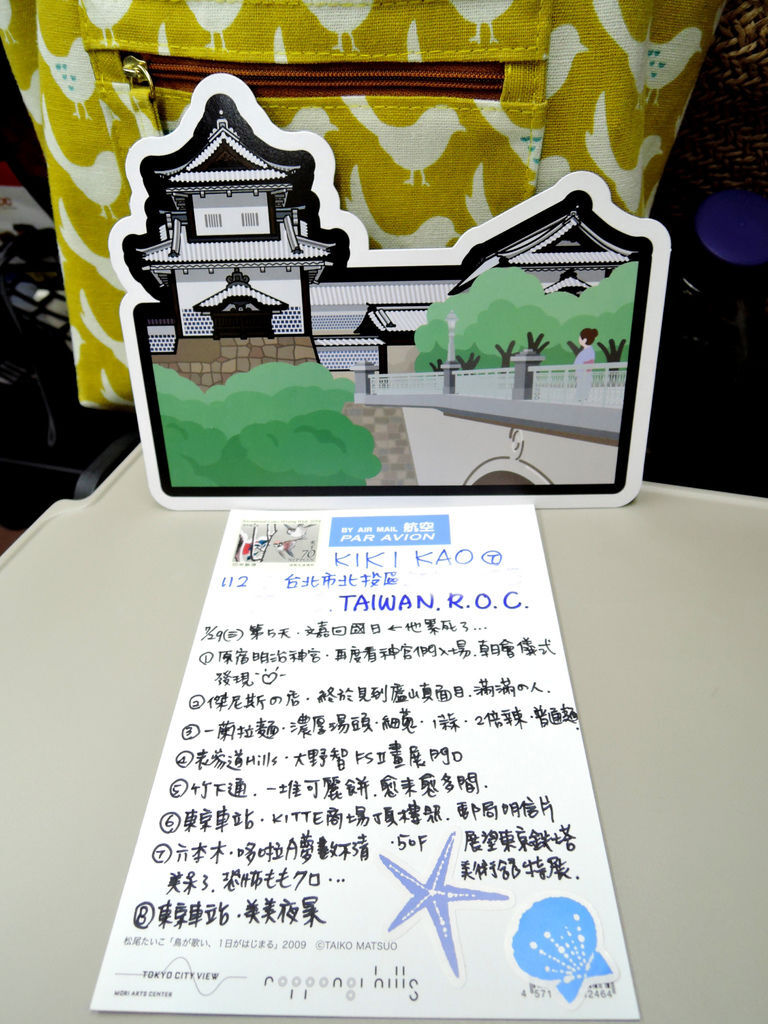 70
BY AIR MAIL 航空
PAR AVION
KIKI KAO ⑦
112 台北市北投區
TAIWAN. R.O.C.
7/29(三) 第5天·文嘉回國日←他累死了...
①原宿明治神宮·再度看神官們入場.朝會儀式
發現
②傑尼斯の店·終於見到廬山真面目.滿滿の人.
③一蘭拉麵·濃厚湯頭·細蔥·1蒜·2倍辣·普通麵
④表參道Hills·大野智FSⅡ畫展門口
⑤竹下通.一堆可麗餅.愈來愈多間.
⑥東京車站·KITTE商場頂樓·郵局明信片
⑦六本木·哆啦A夢數不清·50F 展望東京鐵塔
美呆了.恐怖ももクロ... 美術館特展.
⑧東京車站·美美夜景
松尾たいこ「鳥が歌い、1日がはじまる」2009 ©TAIKO MATSUO
TOKYO CITY VIEW
MORI ARTS CENTER
roppongi hills
4 571 2464